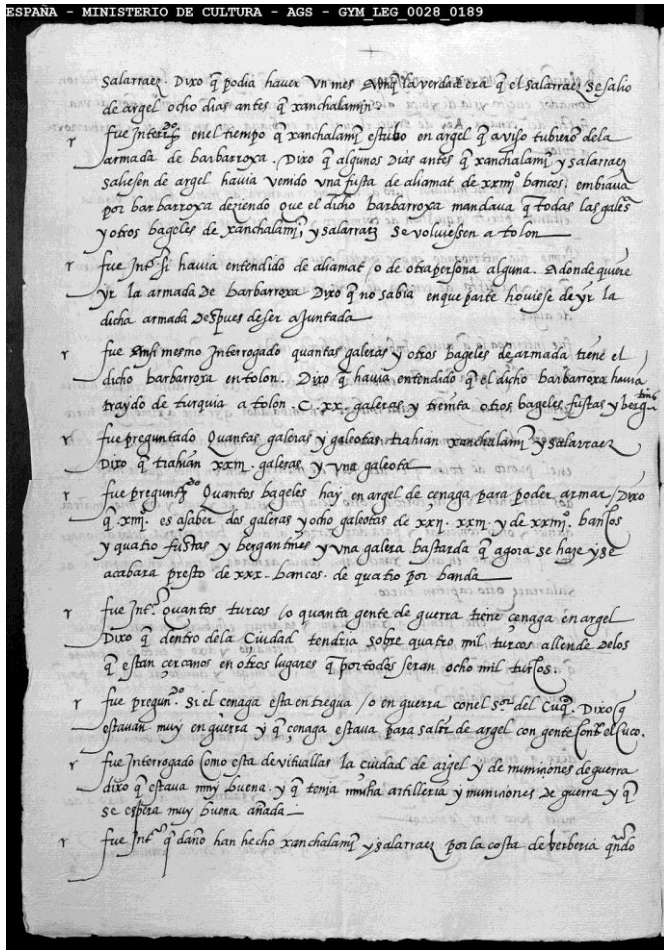 ESPAÑA - MINISTERIO DE CULTURA - AGS - GYM_LEG_0028_0189
Salarraez. Dixo q̃ podia haver un mes Aunq̃ la verdad era q̃ el salarraez se salio
de argel ocho dias antes q̃ xanchalamin.
r fue Inter.do en el tiempo q̃ xanchalami estubo en argel q̃ aviso tubiero dela
armada de barbarroxa. Dixo q̃ algunos dias antes q̃ xanchalami y salarraez
saliesen de argel havia venido una fusta de aliamat de xxiiijº bancos, embiava
por barbarroxa deziendo que el dicho barbarroxa mandava q̃ todas las gales
y otros bageles de xanchalami, y salarraez se volviessen a tolon
r fue Intº. si havia entendido de aliamat / o de otra persona alguna. Adonde quiere
yr la armada de barbarroxa Dixo q̃ no sabia en que parte hoviese de yr la
dicha armada despues de ser ajuntada
r fue Ansi mesmo Interrogado quantas galeras y otros bageles de armada tiene el
dicho barbarroxa en tolon. Dixo q̃ havia entendido q̃ el dicho barbarroxa havia
traydo de turquia a tolon. C.xx. galeras y treinta otros bageles fustas y bergantines
r fue preguntado Quantas galeras y galeotas trahian xanchalami y salarraez
Dixo q̃ trahian xxiij. galeras y una galeota
r fue preguntdo Quantos bageles hay en argel de cenaga para poder armar / Dixo
q̃ xiiij. es asaber dos galeras y ocho galeotas de xxij. xxiij. y de xxiiijº. bancos
y quatro fustas y bergantines y una galera bastarda q̃ agora se haze y se
acabara presto de xxx. bancos. de quatro por banda
r fue Intº. Quantos turcos / o quanta gente de guerra tiene cenaga en argel
Dixo q̃ dentro dela Ciudad tendria sobre quatro mil turcos allende delos
q̃ estan cercanos en otros lugares q̃ por todos seran ocho mil turcos.
r fue pregun.do Si el cenaga esta en tregua / o en guerra con el s.or del Cuq̃. Dixo q̃
estavan muy en guerra y q̃ cenaga estava para salir de argel con gente contra el Cuco.
r fue Interrogado Como esta de vituallas la ciudad de argel y de municiones de guerra
dixo q̃ estava muy buena. y q̃ tenia mucha artilleria y municiones de guerra y q̃
se espera muy buena añada
r fue Intº. q̃ daño han hecho xanchalami y salarraez por la costa de berberia qñdo